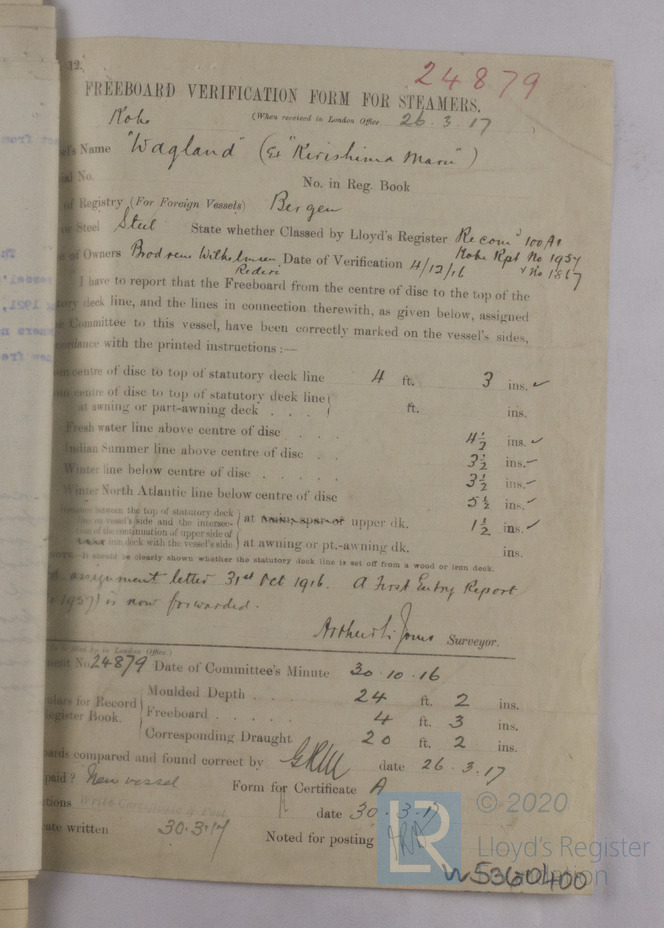 12.
24879
FREEBOARD VERIFICATION FORM FOR STEAMERS.
(When received in London Office 26.3.17
Kobe
sel's Name "Wagland" (Ex "Kirishima Maru")
ial No.
No. in Reg. Book
of Registry (For Foreign Vessels) Bergen
or Steel Steel State whether Classed by Lloyd's Register Recomd 100A1
Kobe Rpt No 1957
& No 1867
e of Owners Brodrene Wilhelmsen Rederi Date of Verification 4/12/16
I have to report that the Freeboard from the centre of disc to the top of the
tory deck line, and the lines in connection therewith, as given below, assigned
e Committee to this vessel, have been correctly marked on the vessel's sides,
ordance with the printed instructions :—
m centre of disc to top of statutory deck line 4 ft. 3 ins. ✓
om centre of disc to top of statutory deck line
at awning or part-awning deck . . . ft. ins.
Fresh water line above centre of disc . . . 4½ ins. ✓
Indian Summer line above centre of disc . . 3½ ins.
Winter line below centre of disc . . . . . 3½ ins.
Winter North Atlantic line below centre of disc 5½ ins. ✓
stance between the top of statutory deck
line on vessel's side and the intersec-
tion of the continuation of upper side of
deck with the vessel's side
at upper dk. 1½ ins. ✓
at awning or pt.-awning dk. ins.
NOTE.—It should be clearly shown whether the statutory deck line is set off from a wood or iron deck.
assignment letter 31st Oct 1916. A First Entry Report
1957) is now forwarded.
Arthur L. Jones Surveyor.
in London Office.)
ment No 24879 Date of Committee's Minute 30.10.16
ulars for Record
egister Book.
Moulded Depth . . . 24 ft. 2 ins.
Freeboard . . . . . 4 ft. 3 ins.
Corresponding Draught 20 ft. 2 ins.
ards compared and found correct by date 26.3.17
paid? New vessel Form for Certificate A
ctions date 30.3.17
ate written 30.3.17 Noted for posting
LR
© 2020
Lloyd's Register
Foundation
W5360400